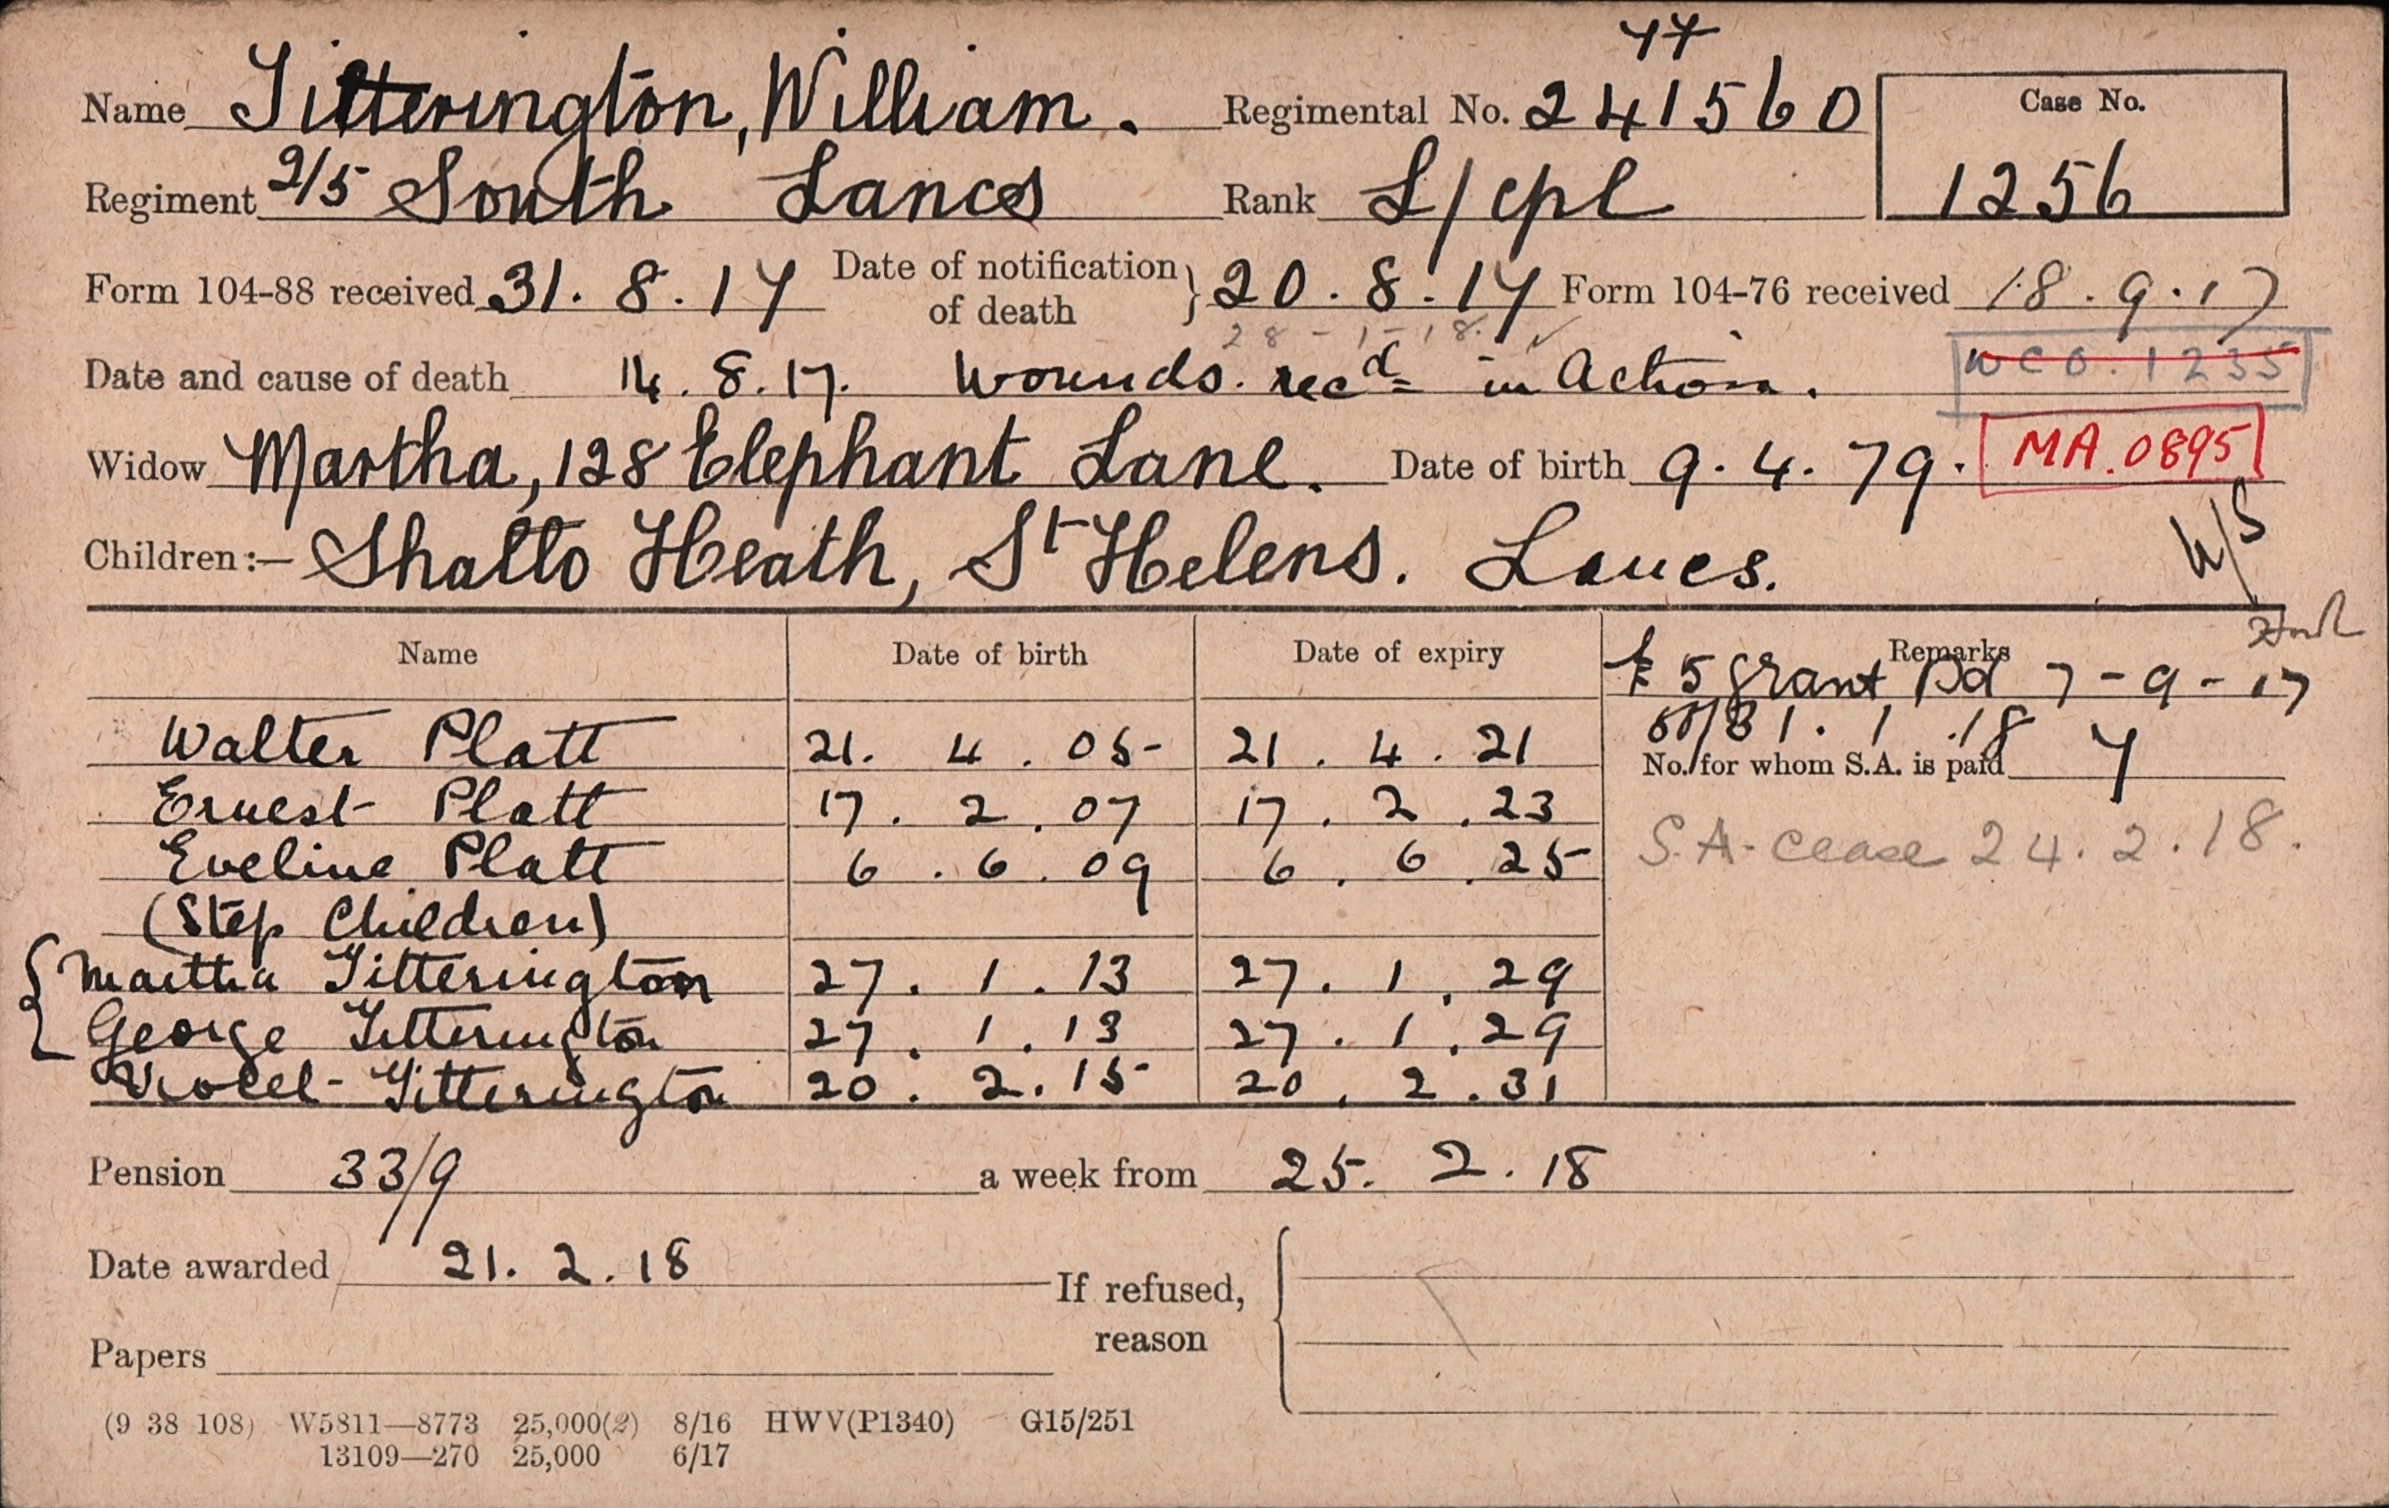 44
Name Titterington, William. Regimental No. 241560 Case No.
Regiment 2/5 South Lancs Rank L/cpl 1256
Form 104-88 received 31.8.17 Date of notification of death } 20.8.17 Form 104-76 received 18.9.17
28-1-18.
Date and cause of death 14.8.17. Wounds. recd in Action. WCO.1235
Widow Martha, 128 Elephant Lane. Date of birth 9.4.79. MA.0895
Children:— Thatto Heath, St Helens. Lancs.
Name Date of birth Date of expiry Remarks
£5 grant Pd 7-9-17
Walter Platt 21.4.05 21.4.21 31.1.18
No. for whom S.A. is paid 7
Ernest Platt 17.2.07 17.2.23
Eveline Platt 6.6.09 6.6.25 S.A. cease 24.2.18.
(Step Children)
{ Martha Titterington 27.1.13 27.1.29
George Titterington 27.1.13 27.1.29
Violet Titterington 20.2.15 20.2.31
Pension 33/9 a week from 25.2.18
Date awarded 21.2.18 If refused,
reason
Papers
(9 38 108) W5811—8773 25,000(2) 8/16 HWV(P1340) G15/251
13109—270 25,000 6/17